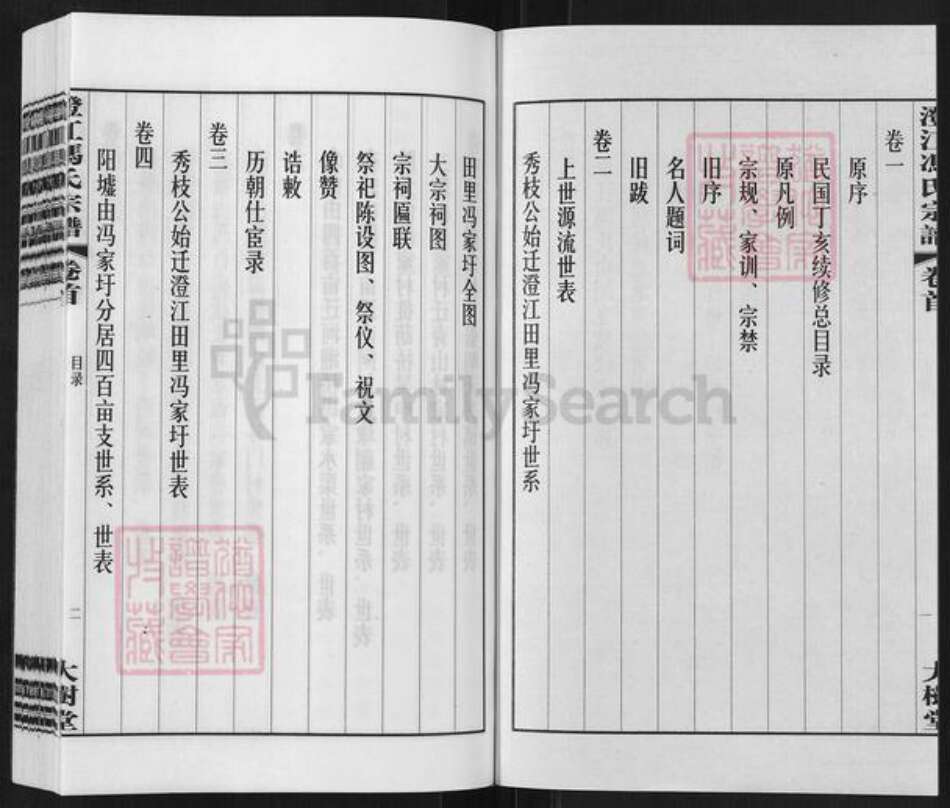 澄江冯氏宗谱
卷首
一
大树堂
卷一
原序
民国丁亥续修总目录
原凡例
宗规、家训、宗禁
旧序
名人题词
旧跋
卷二
上世源流世表
秀枝公始迁澄江田里冯家圩世系
田里冯家圩全图
大宗祠图
宗祠匾联
祭祀陈设图、祭仪、祝文
像赞
诰敕
历朝仕宦录
卷三
秀枝公始迁澄江田里冯家圩世表
卷四
阳墟由冯家圩分居四百亩支世系、世表
澄江冯氏宗谱
卷首
目录
二
大树堂
FamilySearch